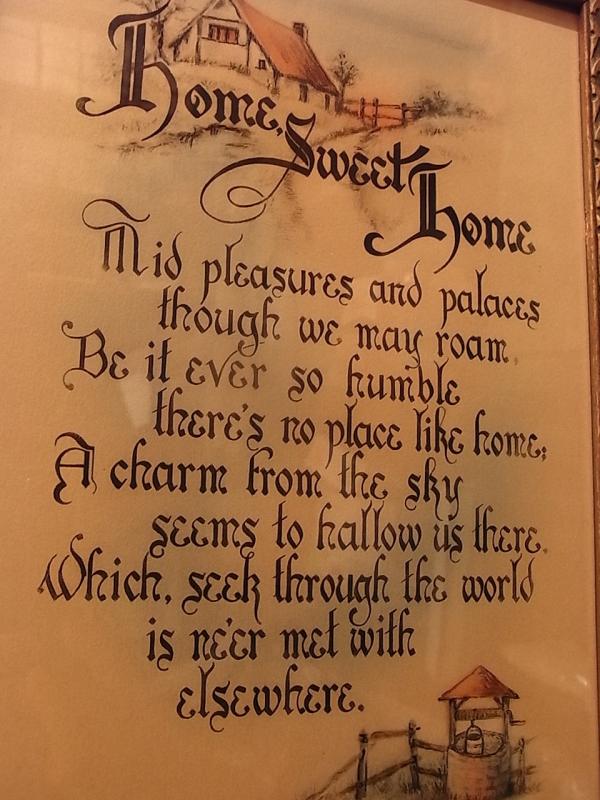 Home,
Sweet
Home
Mid pleasures and palaces
though we may roam.
Be it ever so humble
there's no place like home;
A charm from the sky
seems to hallow us there.
Which, seek through the world
is ne'er met with
elsewhere.